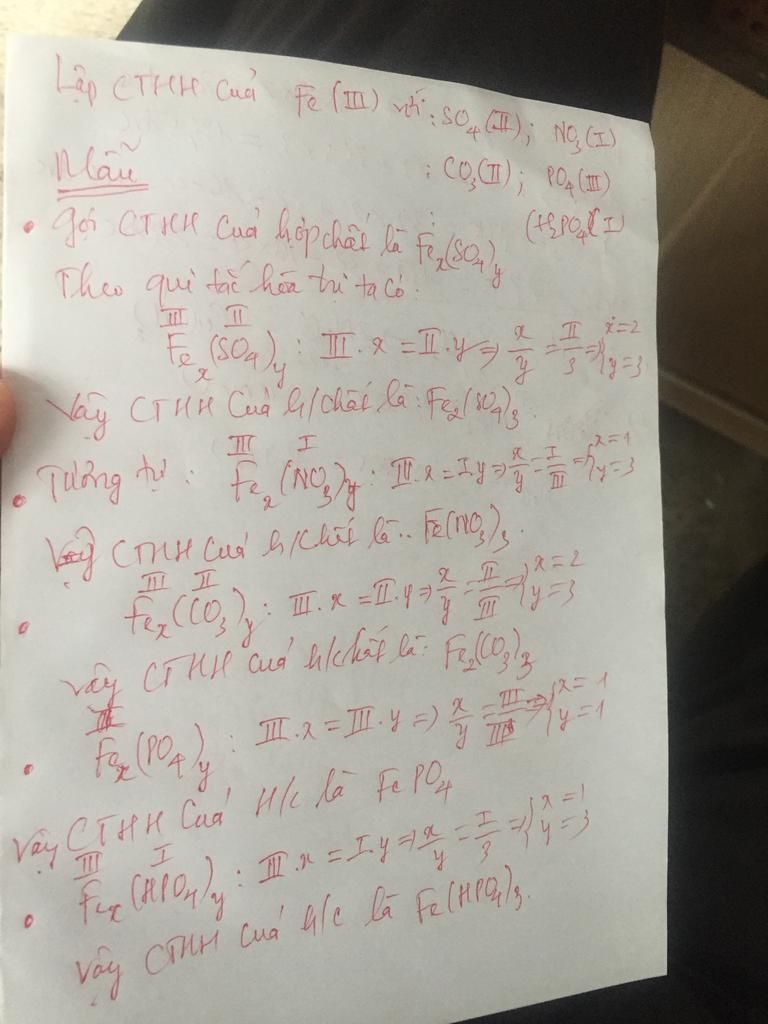 Lập CTHH của Fe (III) với: SO4 (II); NO3 (I)
: CO3 (II); PO4 (III)
Mẫu
(H2PO4) (I)
• Gọi CTHH của hợp chất là: Fex(SO4)y
Theo qui tắc hóa trị ta có:
III II
Fex(SO4)y : III.x = II.y => x/y = II/3 => { x=2 y=3
Vậy CTHH của h/chất là: Fe2(SO4)3.
III I
• Tương tự: Fex(NO3)y : III.x = I.y => x/y = I/III => { x=1 y=3
Vậy CTHH của h/chất là.. Fe(NO3)3.
III II
• Fex(CO3)y : III.x = II.y => x/y = II/III => { x=2 y=3
Vậy CTHH của h/chất là: Fe2(CO3)3
III
• Fex(PO4)y : III.x = III.y => x/y = III/III => { x=1 y=1
Vậy CTHH của H/c là FePO4
III I
• Fex(HPO4)y : III.x = I.y => x/y = I/3 => { x=1 y=3
Vậy CTHH của h/c là Fe(HPO4)3.